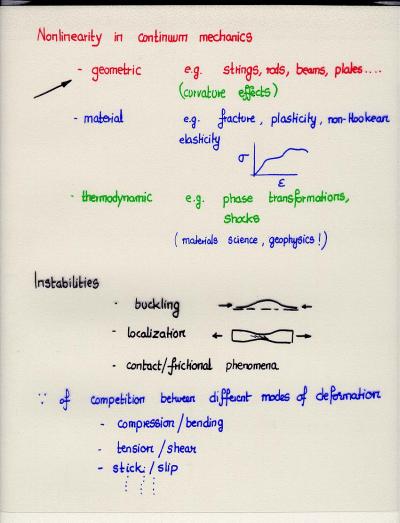 Nonlinearity in continuum mechanics
- geometric e.g. strings, rods, beams, plates....
(curvature effects)
- material e.g. fracture, plasticity, non-Hookean
elasticity
σ
ε
- thermodynamic e.g. phase transformations,
shocks
(materials science, geophysics!)
Instabilities
- buckling
- localization
- contact/frictional phenomena
∵ of competition between different modes of deformation
- compression/bending
- tension/shear
- stick/slip